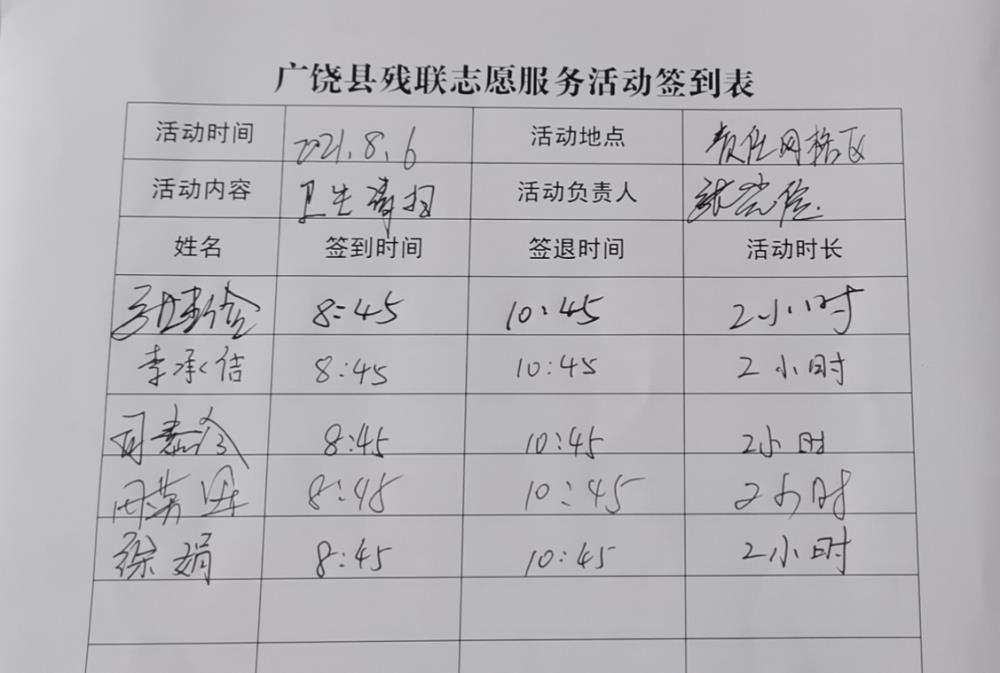 广饶县残联志愿服务活动签到表
活动时间 2021.8.6 活动地点 责任网格区
活动内容 卫生清扫 活动负责人
姓名 签到时间 签退时间 活动时长
8:45 10:45 2小时
李承信 8:45 10:45 2小时
8:45 10:45 2小时
8:45 10:45 2小时
徐娟 8:45 10:45 2小时